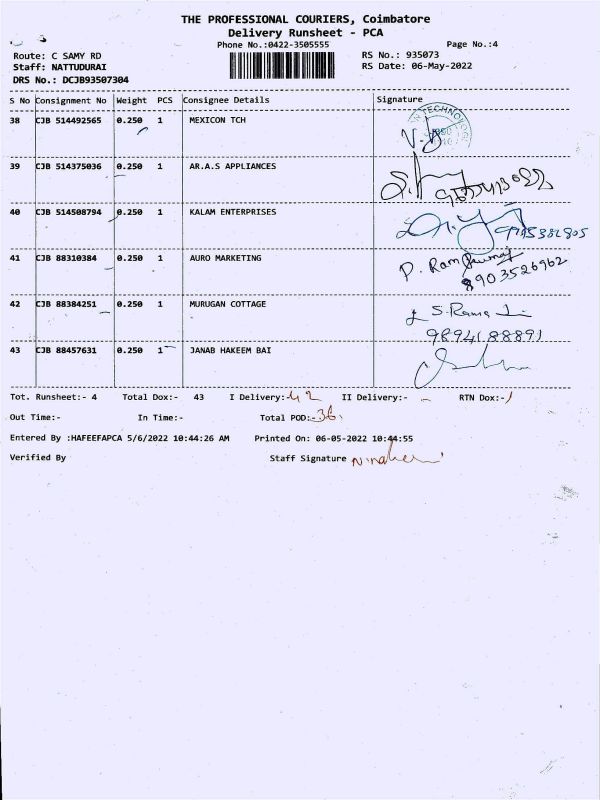 THE PROFESSIONAL COURIERS, Coimbatore
Delivery Runsheet - PCA
Phone No.:0422-3505555 Page No.:4
Route: C SAMY RD RS No.: 935073
Staff: NATTUDURAI RS Date: 06-May-2022
DRS No.: DCJB93507304
S No Consignment No Weight PCS Consignee Details Signature
38 CJB 514492565 0.250 1 MEXICON TCH
TECHNOLOG
39 CJB 514375036 0.250 1 AR.A.S APPLIANCES
40 CJB 514508794 0.250 1 KALAM ENTERPRISES
41 CJB 88310384 0.250 1 AURO MARKETING P. Ram Kumar
8903526962
42 CJB 88384251 0.250 1 MURUGAN COTTAGE
9894188891
43 CJB 88457631 0.250 1 JANAB HAKEEM BAI
Tot. Runsheet:- 4 Total Dox:- 43 I Delivery:- 42 II Delivery:- - RTN Dox:- 1
Out Time:- In Time:- Total POD:- 36
Entered By :HAFEEFAPCA 5/6/2022 10:44:26 AM Printed On: 06-05-2022 10:44:55
Verified By Staff Signature